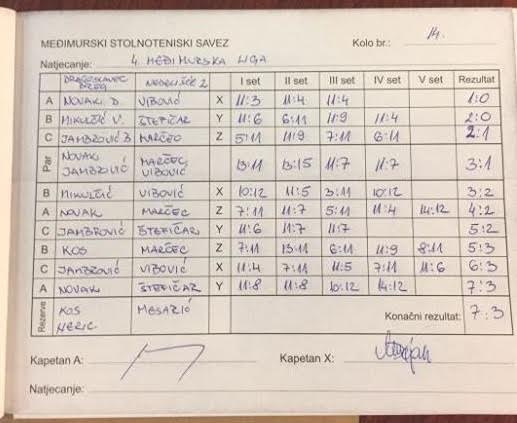 MEĐIMURSKI STOLNOTENISKI SAVEZ Kolo br.: 14.
Natjecanje: 4. MEĐIMURSKA LIGA
DRAGOSLAVEC BREG NEDELIŠĆE 2 I set II set III set IV set V set Rezultat
A NOVAK D. VIBOVIĆ X 11:3 11:4 11:4 1:0
B MIKULČIĆ V. ŠTEFIČAR Y 11:6 6:11 11:9 11:4 2:0
C JAMBROVIĆ B MARČEC Z 5:11 11:9 7:11 6:11 2:1
Par NOVAK JAMBROVIĆ MARČEC, VIBOVIĆ 13:11 13:15 11:7 11:7 3:1
B MIKULČIĆ VIBOVIĆ X 10:12 11:5 3:11 10:12 3:2
A NOVAK MARČEC Z 7:11 11:7 5:11 11:4 14:12 4:2
C JAMBROVIĆ ŠTEFIČAR Y 11:6 11:7 11:7 5:2
B KOS MARČEC Z 7:11 13:11 6:11 11:9 8:11 5:3
C JAMBROVIĆ VIBOVIĆ X 11:4 7:11 11:5 7:11 11:6 6:3
A NOVAK ŠTEFIČAR Y 11:8 11:8 10:12 14:12 7:3
Rezerve KOS NERIC MESARIĆ Konačni rezultat: 7:3
Kapetan A: Kapetan X:
Natjecanje: